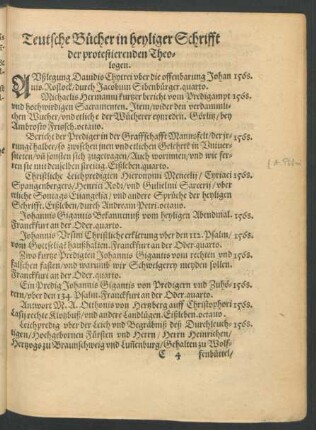 Teutsche Bücher in heyliger Schrifft
der protestierenden Theo-
logen.
AVßlegung Dauidis Chytrei vber die offenbarung Johan 1568.
nis. Rostock/durch Jacobum Sibenbürger. quarto.
Michaelis Hermanni kurtzer bericht vom Predigampt 1568.
vnd hochwirdigen Sacramenten. Item/wider den verdammli-
chen Wucher/vnd etliche der Wücherer eynreden. Görlitz/bey
Ambrosio Fritsch. octauo.
Bericht der Prediger in der Graffschafft Manßfelt/der je- 1568.
nigen halbe/so zwischen jnen vnd etlichen Gelehrten in Vniuer-
siteten/vñ sonsten sich zugetragen/Auch worinnen/vnd wie fer-
ren sie mit denselben streitig. Eißleben. quarto.
Christliche Leichpredigten Hieronymi Mencelij/Cyriaci 1568.
Spangenbergers/Henrici Rodi/vnd Gulielmi Sarcerij/vber
etliche Sontags Euangelia/vnd andere Sprüche der heyligen
Schrifft. Eißleben/durch Andream Petri. octauo.
Johannis Gigantis Bekanntnuß vom heyligen Abendmal. 1568.
Franckfurt an der Oder. quarto.
Johannis Vrsini Christliche erklerung vber den 112. Psalm/ 1568.
vom Gottseligē haußhalten. Franckfurt an der Oder. quarto.
Zwo kurtze Predigten Johannis Gigantis vom rechten vnd 1568.
falschen fasten/vnd warumb wir Schwelgerey meyden sollen.
Franckfurt an der Oder. quarto.
Ein Predig Johannis Gigantis von Predigern vnd Zuhö- 1568.
rern/vber den 134. Psalm. Franckfurt an der Oder. quarto.
Antwort M. A. Otthonis von Hertzberg auff Christophori 1568.
Lasij rechte Klotzbuß/vnd andere Landlügen. Eißleben. octauo.
Leichpredig vber der Leich vnd Begräbniß deß Durchleuch- 1568.
tigen/Hochgebornen Fürsten vnd Herrn/Herrn Heinrichen/
Hertzogs zu Braunschweig vnd Lüneburg/Gehalten zu Wolf-
C 4 fenbüttel/